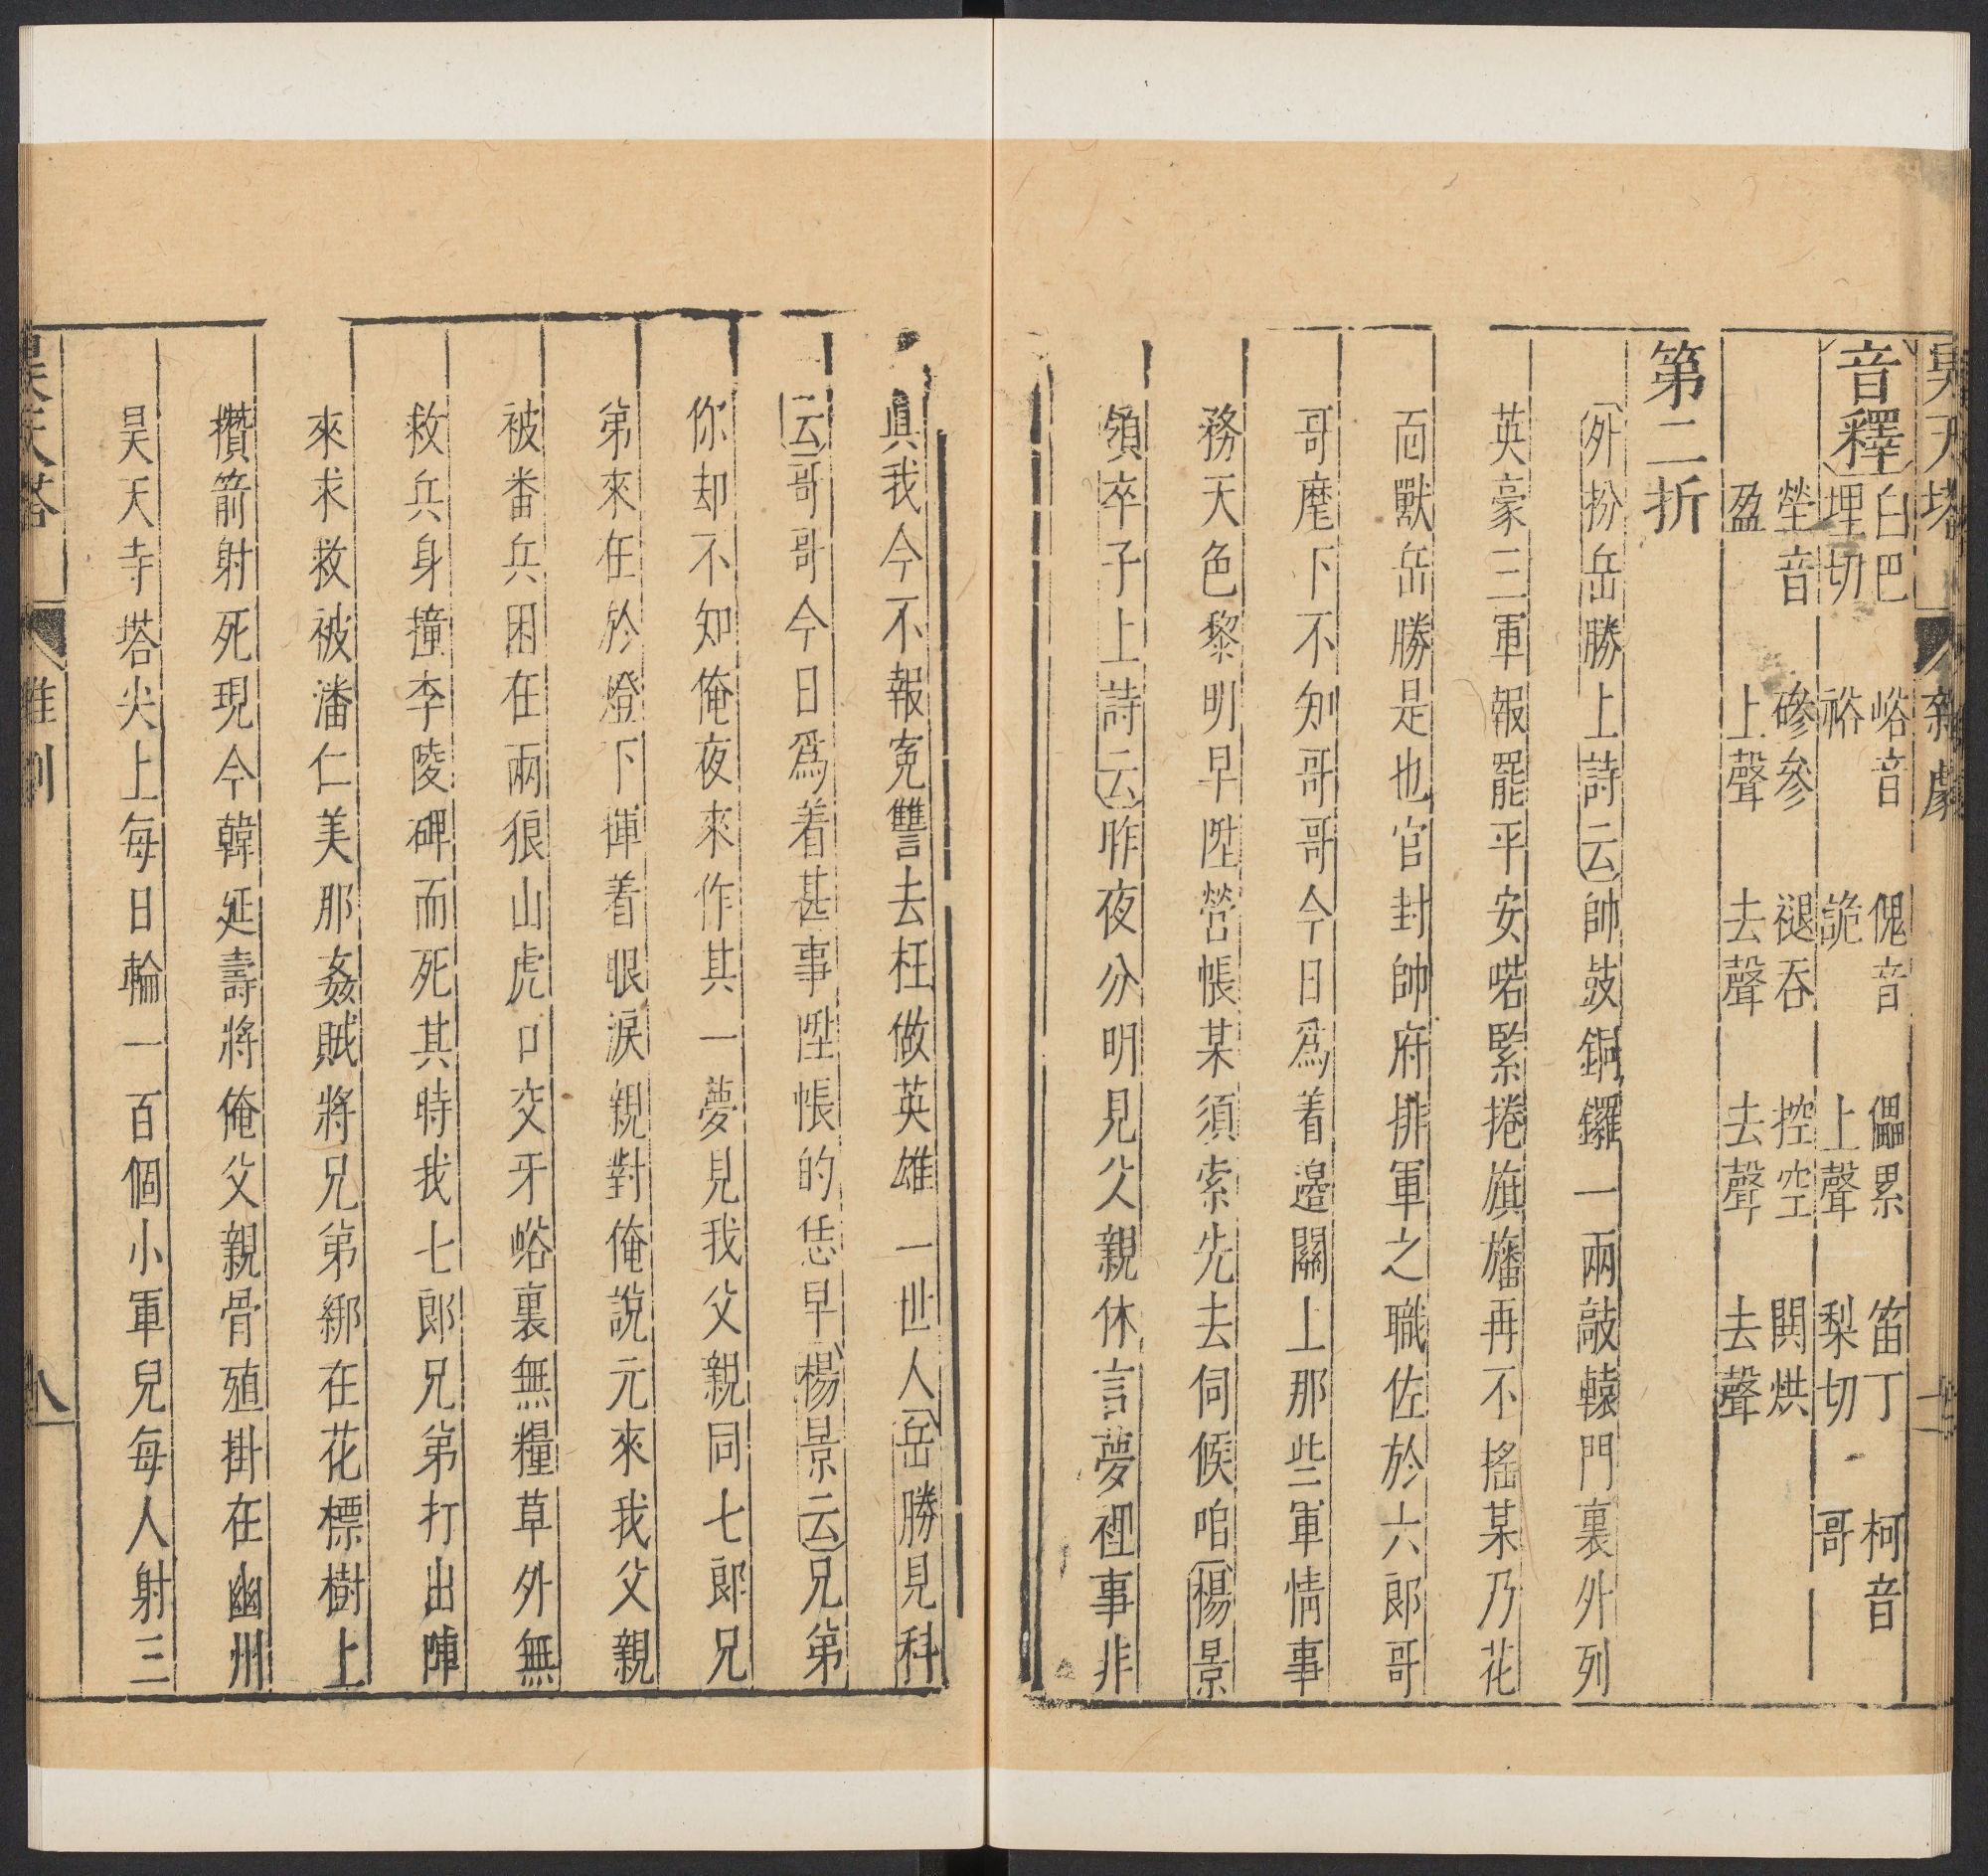 昊天塔 雜劇
音釋 白巴埋切 峪音裕 傀音詭 儡累上聲 笛丁梨切 柯音哥
塋音盈 磣參上聲 褪吞去聲 控空去聲 鬨烘去聲
第二折
外扮岳勝上詩云帥鼓銅鑼一兩敲轅門裏外列
英豪三軍報罷平安喏緊捲旗旛再不搖某乃花
面獸岳勝是也官封帥府排軍之職佐於六郎哥
哥麾下不知哥哥今日爲着邊關上那些軍情事
務天色黎明早陞營帳某須索先去伺候咱楊景
領卒子上詩云昨夜分明見父親休言夢裡事非
眞我今不報寃讐去枉做英雄一世人岳勝見科
云哥哥今日爲着甚事陞帳的恁早楊景云兄弟
你却不知俺夜來作其一夢見我父親同七郎兄
弟來在於燈下揮着眼淚親對俺說元來我父親
被番兵困在兩狼山虎口交牙峪裏無糧草外無
救兵身撞李陵碑而死其時我七郎兄弟打出陣
來求救被潘仁美那姦賊將兄弟綁在花標樹上
攢箭射死現今韓延壽將俺父親骨殖掛在幽州
昊天寺塔尖上每日輪一百個小軍兒每人射三
昊天塔 雜劇 八